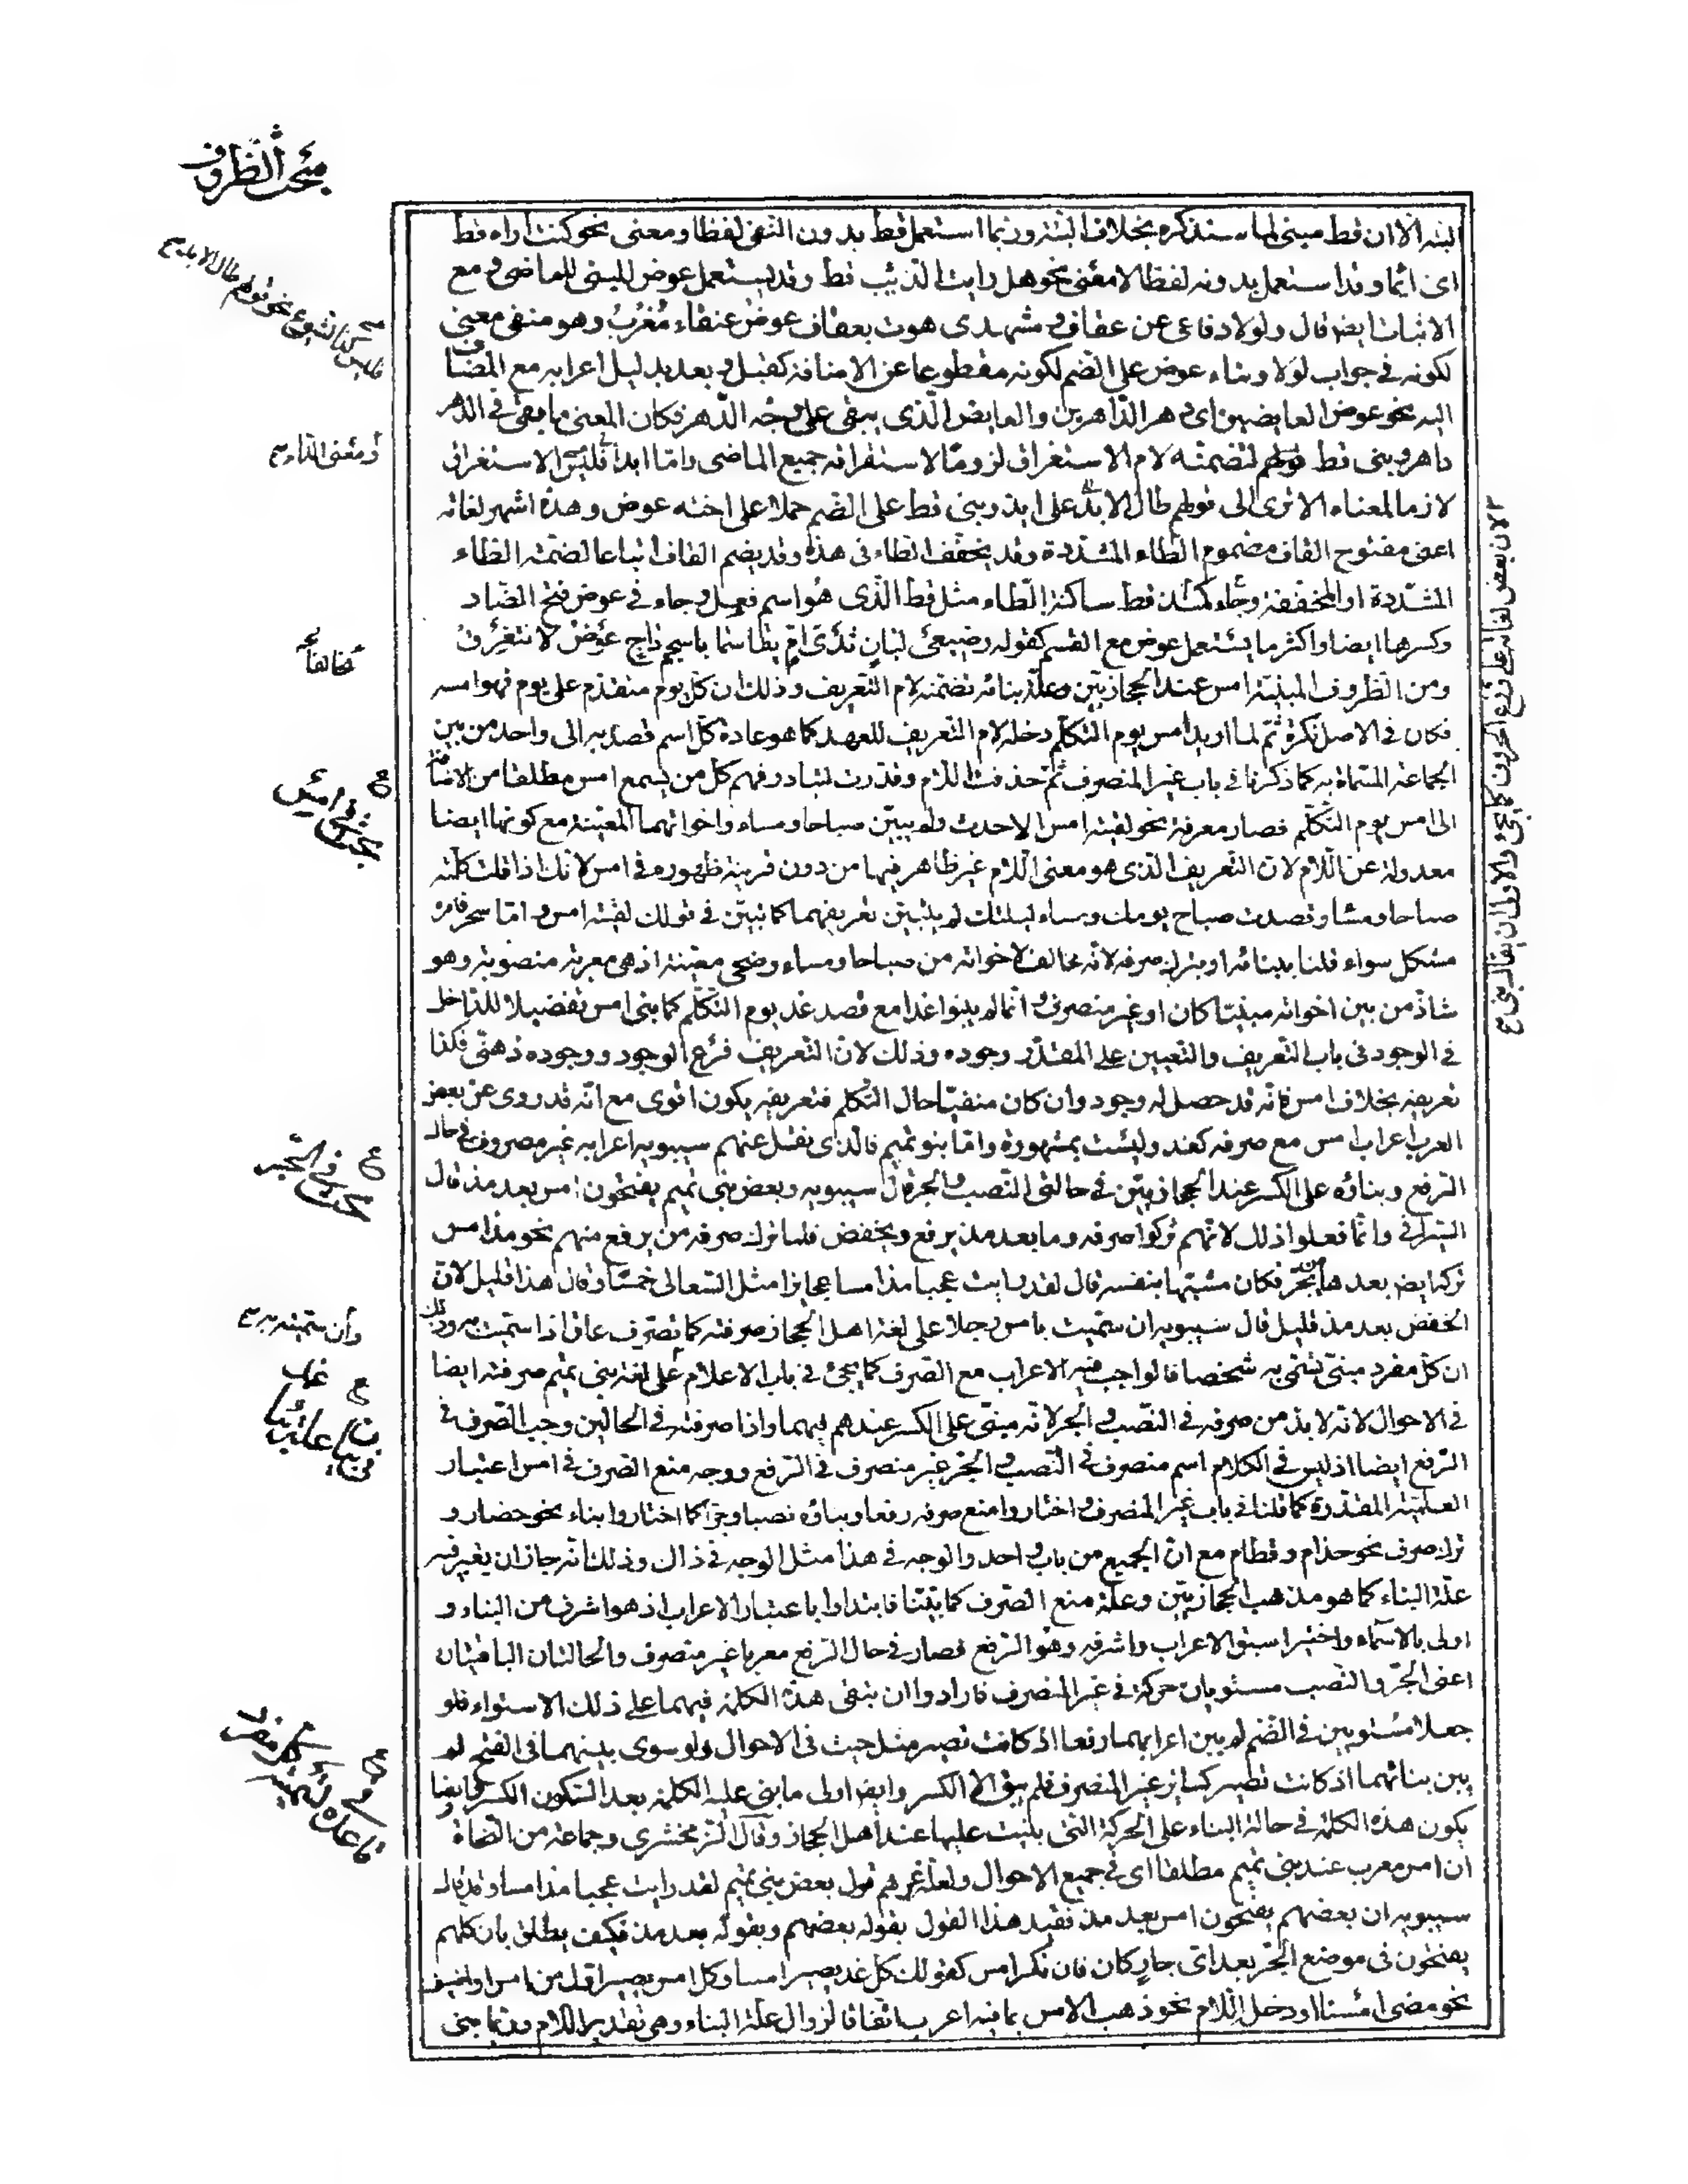 مبحث الظروف
البتة الا ان قط مبنى لما سنذكره بخلاف البتة وربما استعمل قط بدون النفى لفظا ومعنى نحو كنت اراه قط
اى دائما وقد استعمل بدونه لفظا لا معنى نحو هل رايت الذئب قط وقد يستعمل عوض للمبنى للماضى ومع
الاثبات ايضا قال ولولا دفاعى عن عفاق ومشهدى هوت بعفاق عوض عنقاء مغرب وهو منفى معنى
لكونه فى جواب لولا وبناء عوض على الضم لكونه مقطوعا عن الاضافة كقبل وبعد بدليل اعرابه مع المضاف
اليه نحو عوض العايضين اى دهر الداهرين والعايض الذى يبقى على وجه الدهر فكان المعنى ما بقى فى الدهر
داهر وبنى قط لتضمنه لام الاستغراق لزوما لاستغراقه جميع الماضى واما ابدا فليس الاستغراق
لازما لمعناه الا ترى الى قولهم طال الابد على لبد وبنى قط على الضم حملا على اخته عوض وهذه اشهر لغاته
اعنى مفتوح القاف مضموم الطاء المشددة وقد يخفف الطاء فى هذه وقد يضم القاف اتباعا لضمة الطاء
المشددة او المخففة وجاء قط ساكنة الطاء مثل قط الذى هو اسم فعل وجاء فى عوض فتح الضاد
وكسرها ايضا واكثر ما يستعمل عوض مع القسم كقوله رضيعى لبان ثدى ام تقاسما باسحم داج عوض لا نتفرق
ومن الظروف المبنية امس عند الحجازيين وعلة بنائه تضمنه لام التعريف وذلك ان كل يوم متقدم على يوم فهو امسه
فكان فى الاصل نكرة ثم لما اريد امس يوم التكلم دخله لام التعريف للعهد كما هو عادة كل اسم قصد به الى واحد من بين
الجماعة المسماة به كما ذكرنا فى باب غير المنصرف ثم حذفت اللام وقدرت لتبادر فهم كل من يسمع امس مطلقا من الاضافة
الى امس يوم التكلم فصار معرفة نحو لقيته امس الاحدث ولم يبين صباحا ومساء واخواتهما المعينة مع كونها ايضا
معدولة عن اللام لان التعريف الذى هو معنى اللام غير ظاهر فيها من دون قرينة ظهوره فى امس لانك اذا قلت كلمته
صباحا ومساء وقصدت صباح يومك ومساء ليلتك لم يتبين تعريفهما كما تبين فى قولك لقيته امس واما سحر فامره
مشكل سواء قلنا ببنائه او بترك صرفه لانه مخالف لاخواته من صباحا ومساء وضحى معينة اذ هى معربة منصوبة وهو
شاذ من بين اخواته مبنيا كان او غير منصرف وانما لم يبنوا غدا مع قصد غد يوم التكلم كما بنى امس تفضيلا للداخل
فى الوجود فى باب التعريف والتعيين على المقدر وجوده وذلك لان التعريف فرع الوجود ووجوده ذهنى فكذا
تعريفه بخلاف امس فانه قد حصل له وجود وان كان منفيا حال التكلم فتعريفه يكون اقوى مع انه قد روى عن بعض
العرب اعراب امس مع صرفه كغد وليست بمشهورة واما بنو تميم فالذى نقل عنهم سيبويه اعرابه غير مصروف فى حال
الرفع وبناؤه على الكسر عند الحجازيين فى حالتى النصب والجر قال سيبويه وبعض بنى تميم يفتحون امس بعد مذ قال
السيرافى وانما فعلوا ذلك لانهم تركوا صرفه وما بعد مذ يرفع ويخفض فلما ترك صرفه من يرفع منهم نحو مذ امس
تركه ايضا بعدها من يجر فكان مشبها بنفسه قال لقد رايت عجبا مذ امسا عجايزا مثل السعالى خمسا وقال هذا قليل لان
الخفض بعد مذ قليل قال سيبويه ان سميت بامس رجلا على لغة اهل الحجاز صرفته كما تصرف غاق اذا سميت به وذلك
ان كل مفرد مبنى تسمى به شخصا فالواجب فيه الاعراب مع الصرف كما يجئ فى باب الاعلام على لغة بنى تميم صرفته ايضا
فى الاحوال لانه لا بد من صرفه فى النصب والجر لانه مبنى على الكسر عندهم فيهما واذا صرفته فى الحالين وجب الصرف فى
الرفع ايضا اذ ليس فى الكلام اسم منصرف فى النصب والجر غير منصرف فى الرفع ووجه منع الصرف فى امس اعتبار
العلمية المقدرة كما قلنا فى باب غير المنصرف واختاروا منع صرفه رفعا وبناؤه نصبا وجرا كما اختاروا بناء نحو حضار و
ترك صرف نحو حذام وقطام مع ان الجميع من باب واحد والوجه فى هذا مثل الوجه فى ذاك وذلك انه جاز ان يغير فيه
علة البناء كما هو مذهب الحجازيين وعلة منع الصرف كما بيننا فابتداوا باعتبار الاعراب اذ هو اشرف من البناء و
اولى بالاسماء واختير اسبق الاعراب واشرفه وهو الرفع فصار فى حال الرفع معربا غير منصرف والحالتان الباقيتان
اعنى الجر والنصب مستويان حركة فى غير المنصرف فارادوا ان يبقى هذه الكلمة فيهما على ذلك الاستواء فلو
جعلا مستويين فى الضم لم يبين اعرابهما رفعا اذ كانت تصير مثل حيث فى الاحوال ولو سوى بينهما فى الفتح لم
يبين بنائهما اذ كانت تصير كساير غير المنصرف فلم يبق الا الكسر وايضا اولى ما بنى عليه الكلمة بعد السكون الكسر وايضا
يكون هذه الكلمة فى حالة البناء على الحركة التى بنيت عليها عند اهل الحجاز وقال الزمخشرى وجماعة من النحاة
ان امس معرب عند بنى تميم مطلقا اى فى جميع الاحوال ولعله غرهم قول بعض بنى تميم لقد رايت عجبا مذ امسا وقد قال
سيبويه ان بعضهم يفتحون امس بعد مذ فقيد هذا القول بقوله بعضهم وبقوله بعد مذ فكيف يطلق بان كلهم
يفتحون فى موضع الجر بعد اى جار كان فان نكر امس كقولك كل غد يصير امسا وكل امس يصير اول من امس او اضيف
نحو مضى امسنا او دخله اللام نحو ذهب الامس بما فيه اعرب اتفاقا لزوال علة البناء وهى تقدير اللام وربما بنى
او معنى الدوام
مخالفا
بحث فى امس
بحث فى السحر
وان سميته به